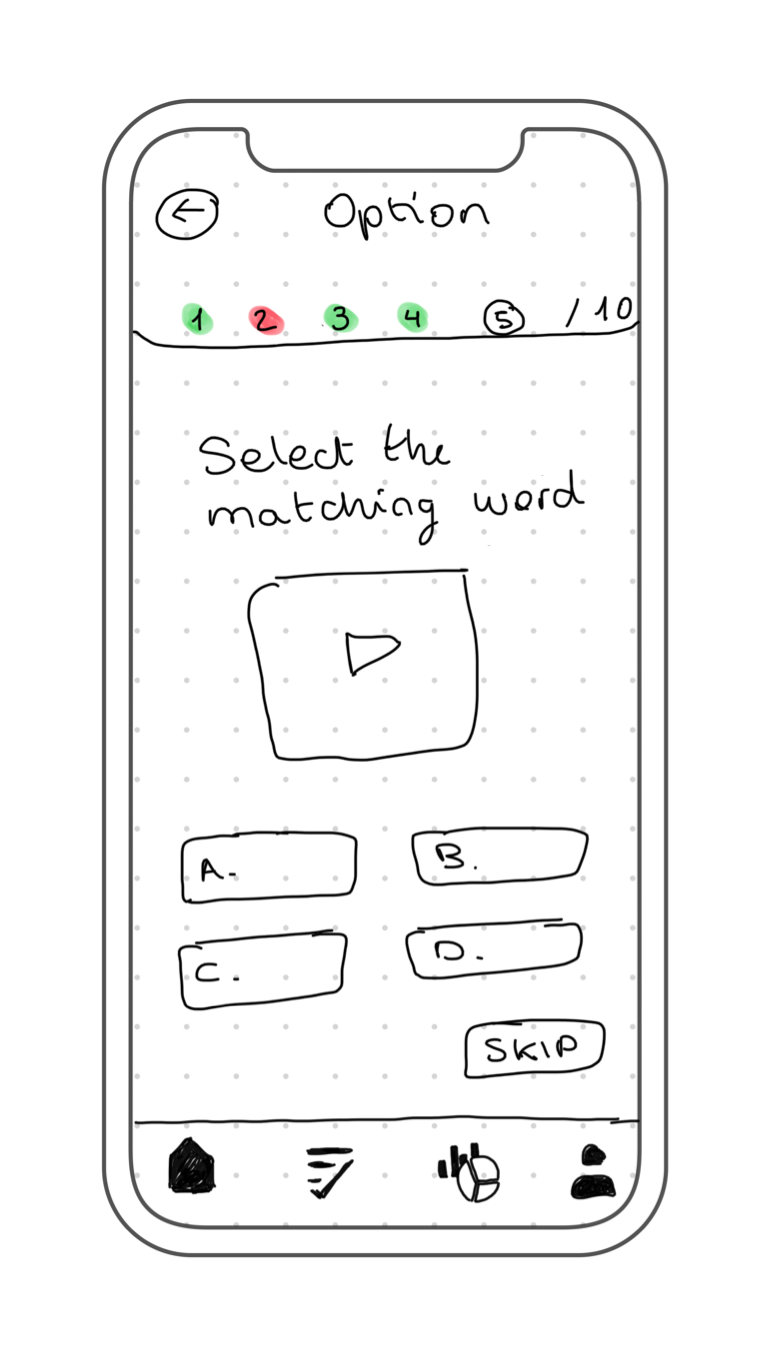 Option
1 2 3 4 5 / 10
Select the
matching word
A. B.
C. D.
SKIP